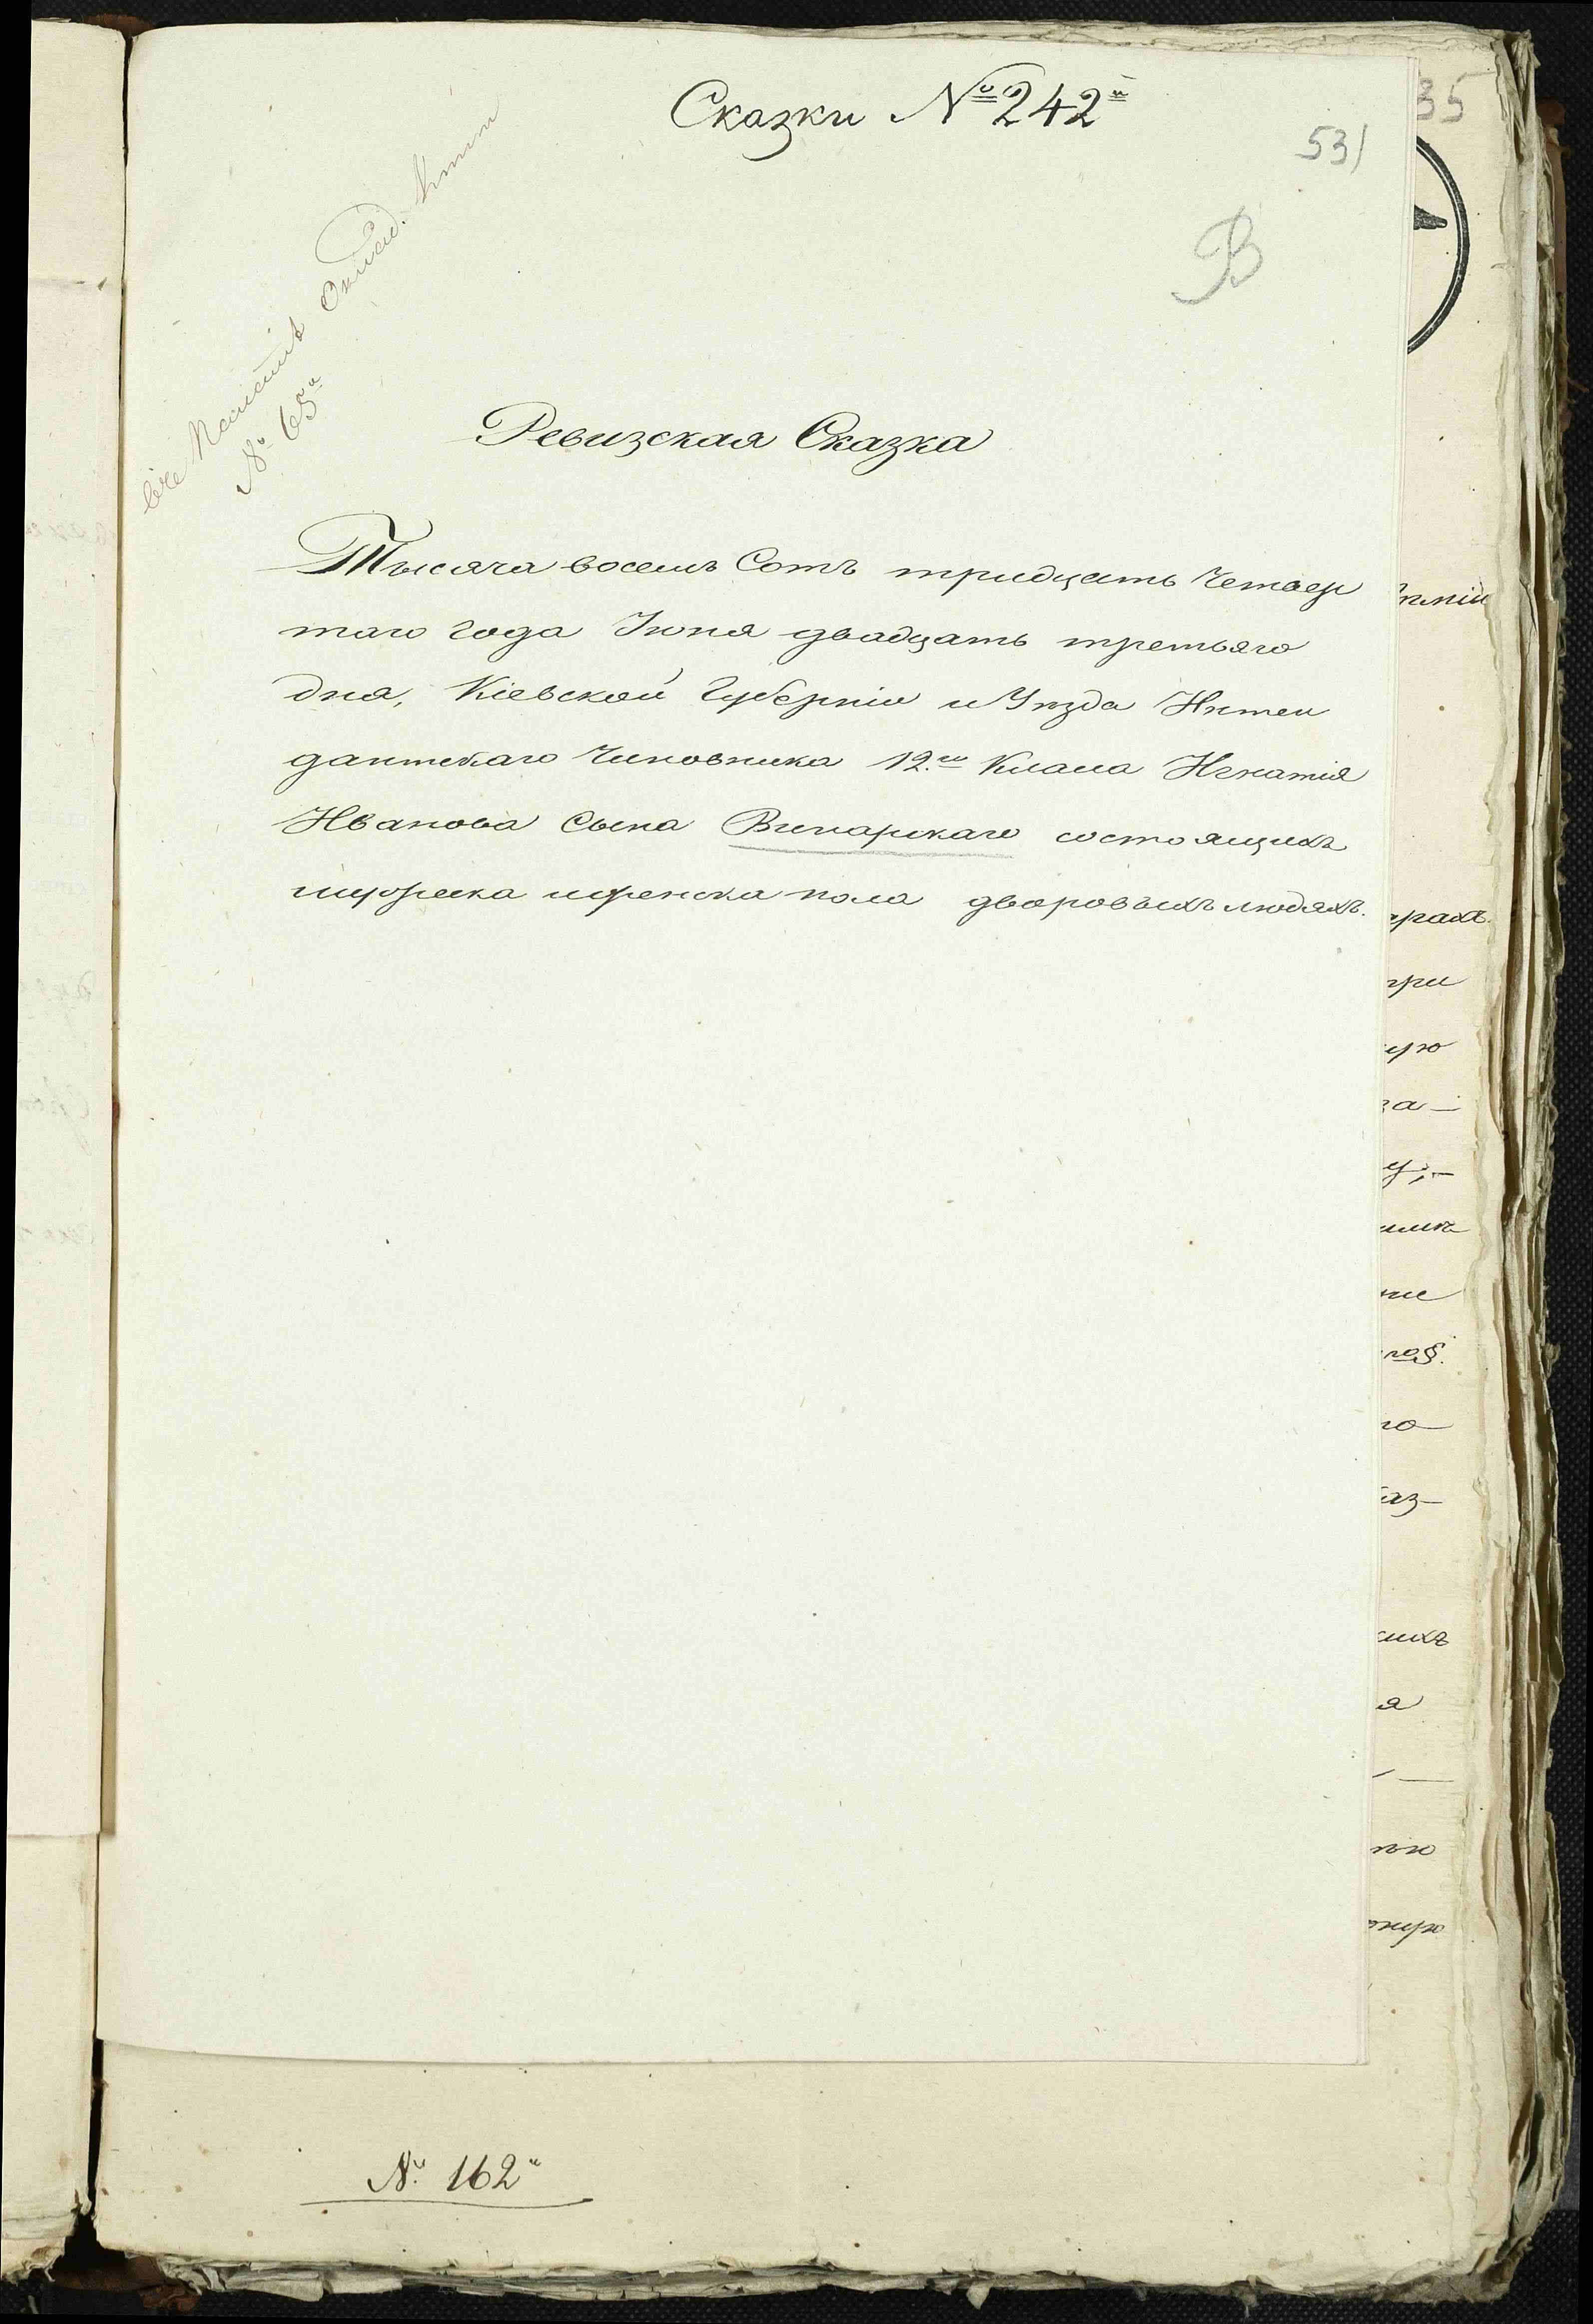 Сказки № 242й
531
В
№ 65й
Ревизская Сказка
Тысяча восемь Сотъ тридцать Четвер
таго года Іюня двадцать третьяго
дня, Кіевской Губерніи и Уѣзда Интен
дантскаго Чиновника 12го Класса Игнатія
Иванова Сына Винарскаго состоящихъ
мужеска и женска пола дворовыхъ людяхъ.
35
№ 162й